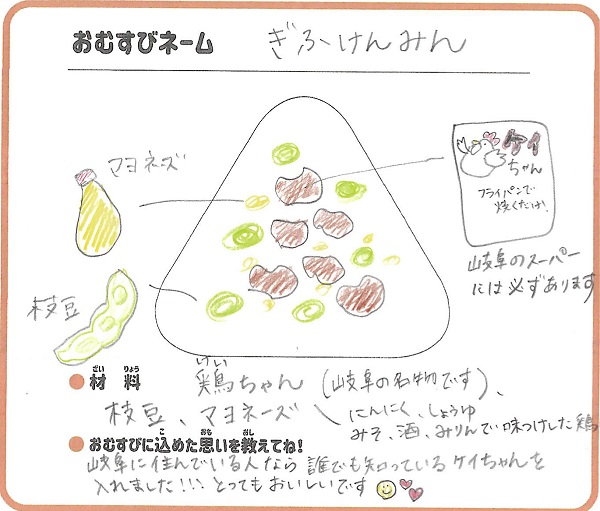 おむすびネーム ぎふけんみん
マヨネーズ
ケイ
ちゃん
フライパンで
焼くだけ!
岐阜のスーパー
には必ずあります
枝豆
ざい りょう けい
●材 料 鶏ちゃん (岐阜の名物です)、
枝豆、マヨネーズ
にんにく、しょうゆ
みそ、酒、みりんで味つけした鶏
こ おも おし
●おむすびに込めた思いを教えてね!
岐阜に住んでいる人なら誰でも知っているケイちゃんを
入れました!!! とってもおいしいです